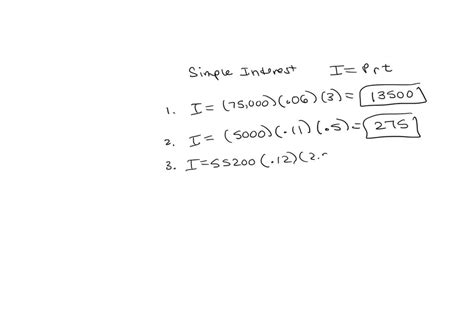 Simple Interest I = Prt
1. I = (75,000)(.06)(3) = 13500
2. I = (5000)(.11)(.5) = 275
3. I = 55200(.12)(2.